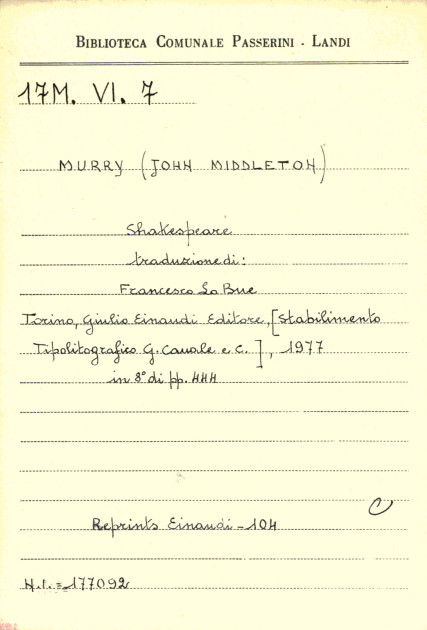 BIBLIOTECA COMUNALE PASSERINI - LANDI
17M. VI. 7
MURRY (JOHN MIDDLETON)
Shakespeare
traduzione di:
Francesco Lo Bue
Torino, Giulio Einaudi Editore, [Stabilimento
Tipolitografico G. Canale e C.], 1977
in 8° di pp. 444
C
Reprints Einaudi - 104
N.I. = 177092